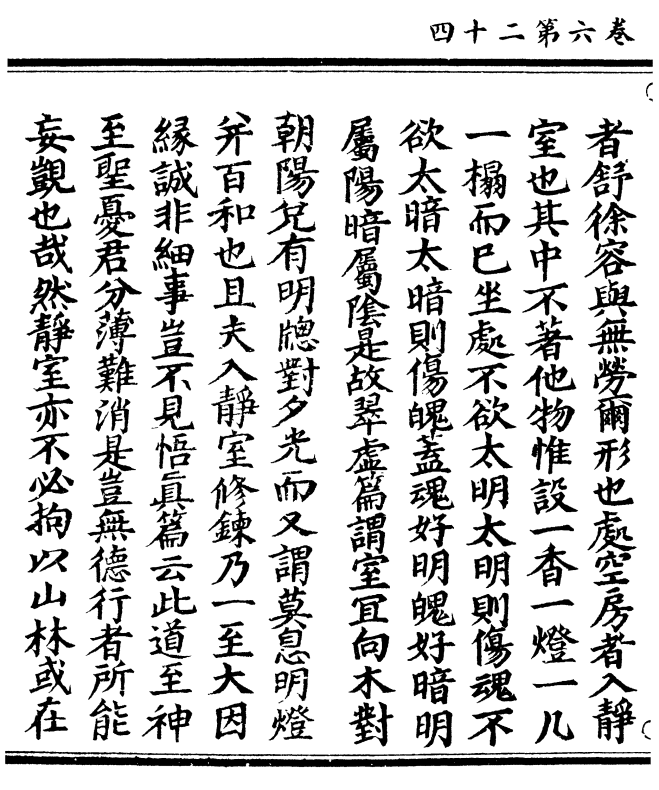 卷六第二十四
者舒徐容與無勞爾形也處空房者入靜
室也其中不著他物惟設一香一燈一几
一榻而巳坐處不欲太明太明則傷魂不
欲太暗太暗則傷魄蓋魂好明魄好暗明
屬陽暗屬陰是故翠虛篇謂室冝向木對
朝陽兌有明牕對夕光而又謂莫息明燈
并百和也且夫入靜室修鍊乃一至大因
緣誠非細事豈不見悟眞篇云此道至神
至聖憂君分薄難消是豈無德行者所能
妄覬也哉然靜室亦不必拘以山林或在